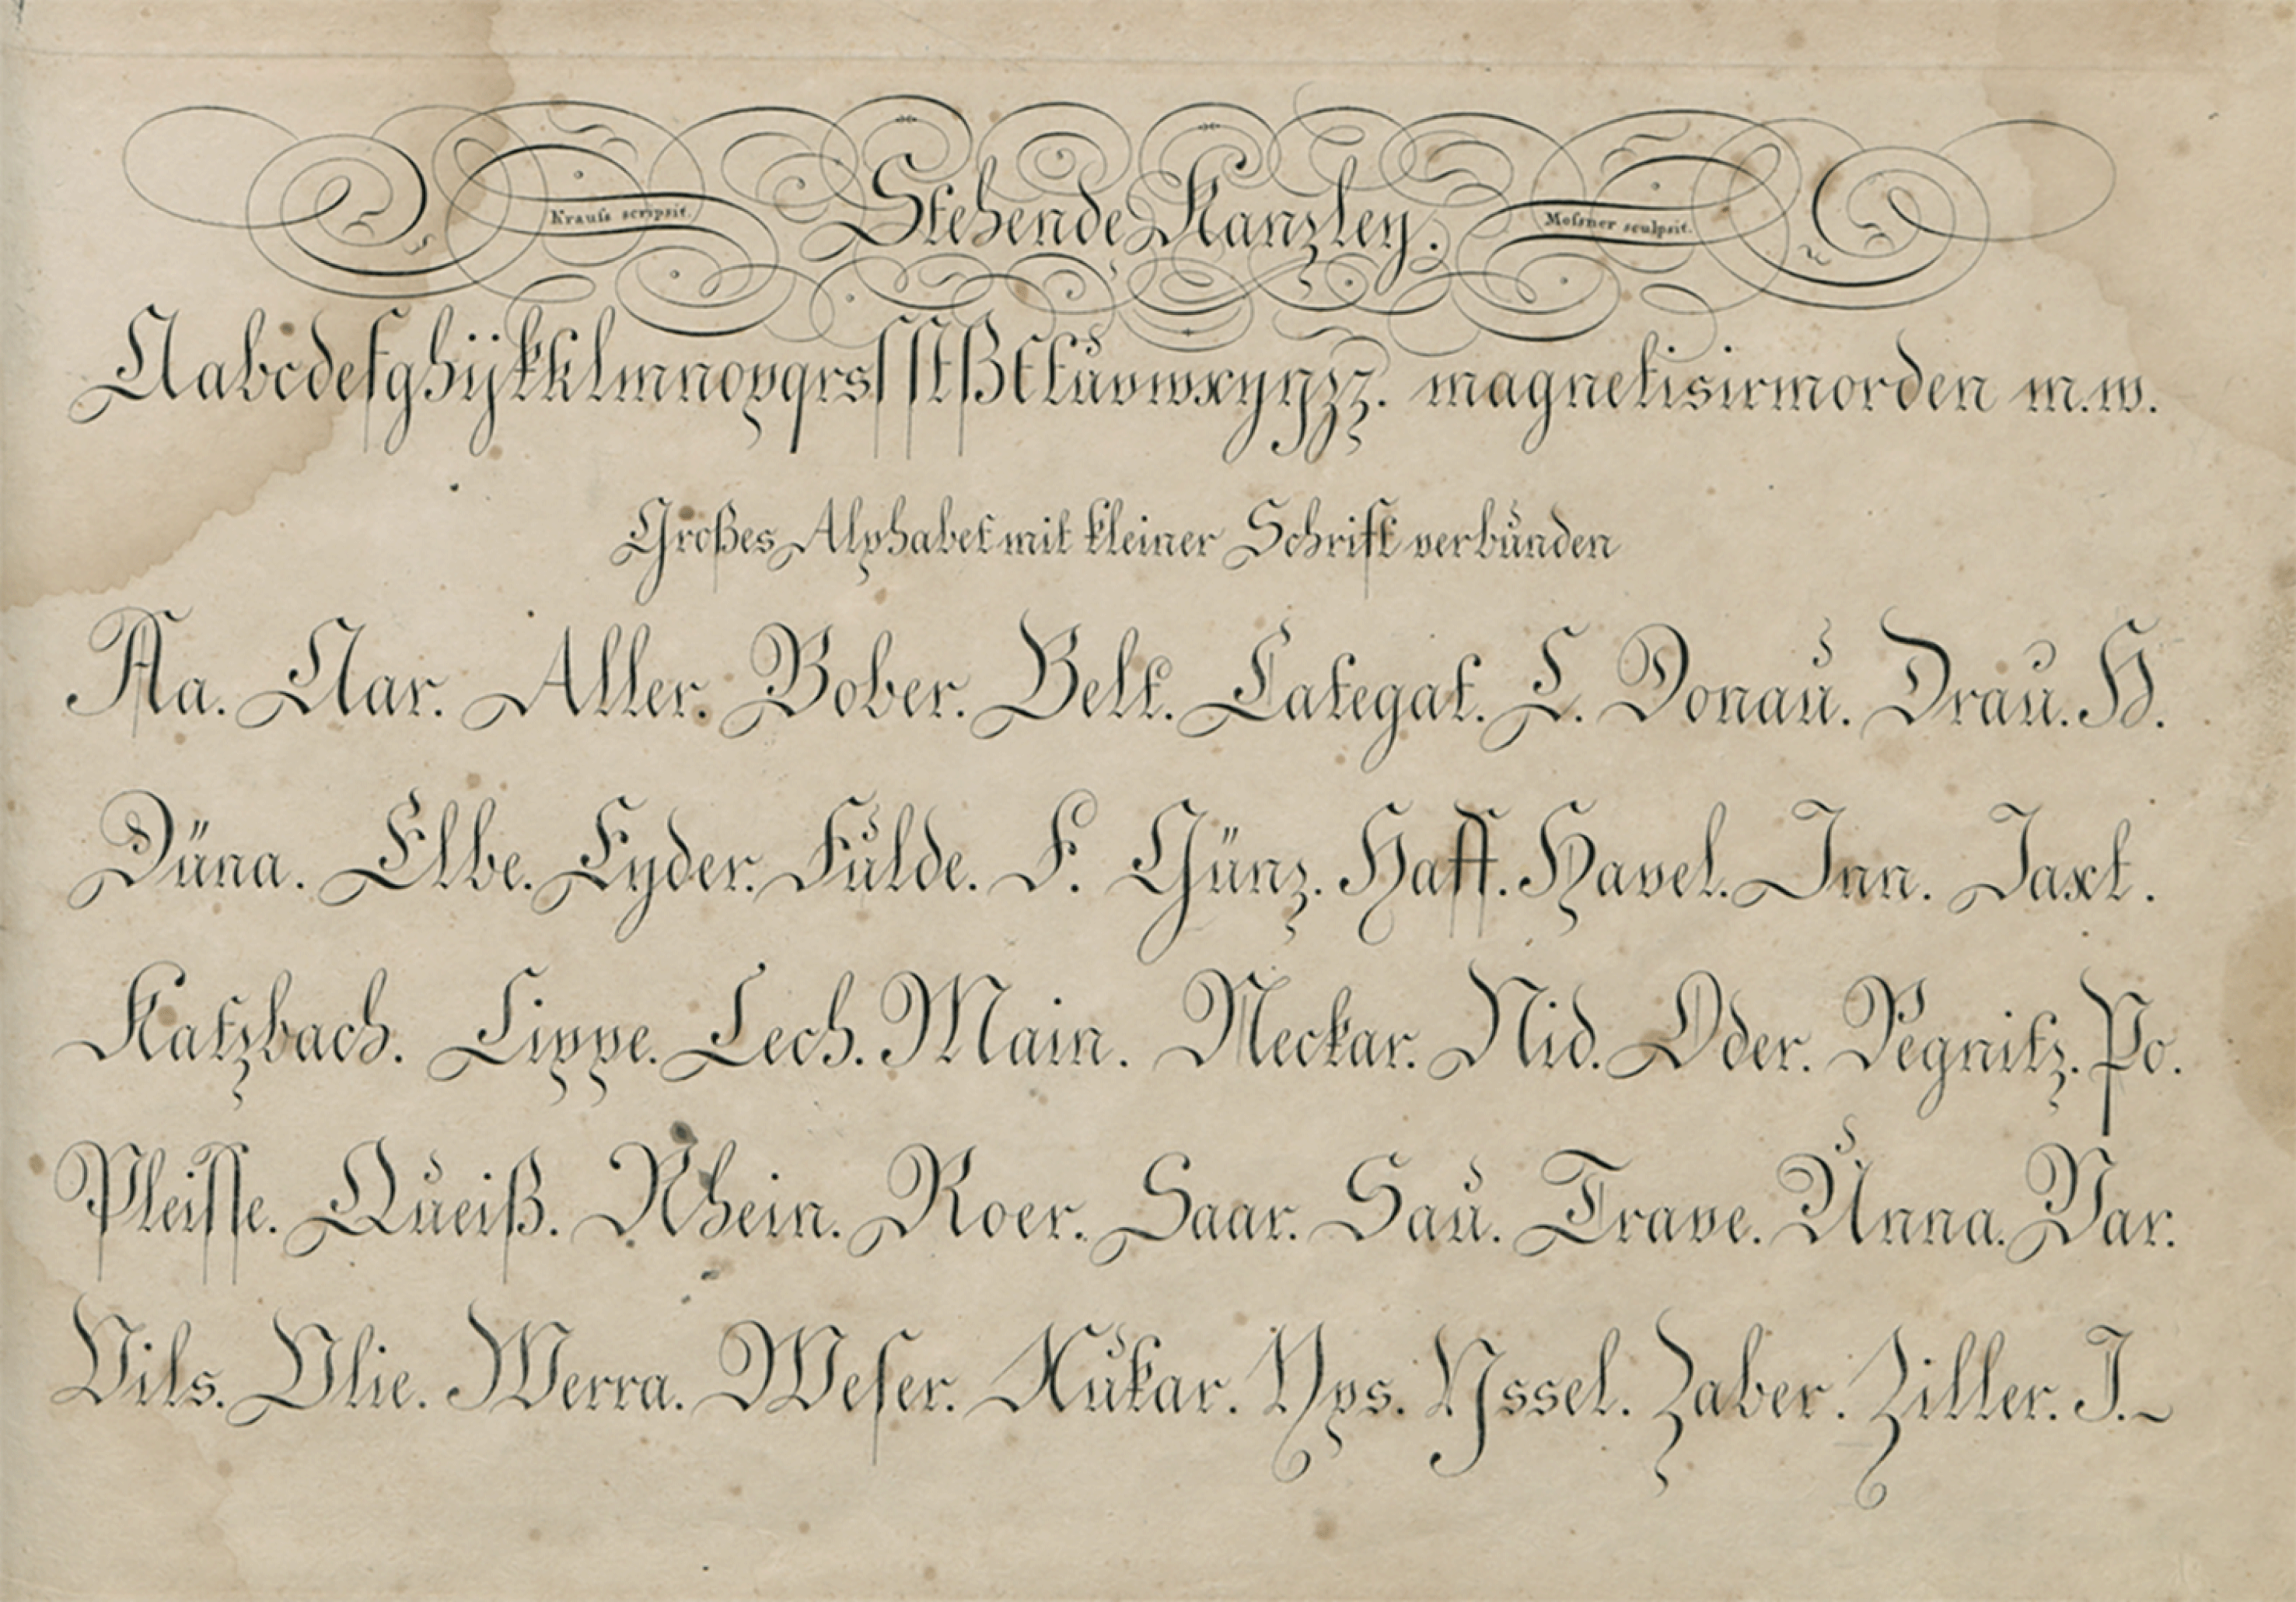 Krauſs scripsit. Stehende Kanzley. Moſsner sculpsit.
Aabcdefghijkklmnopqrsſſſtßttuvwxyyzz. magnetisirmorden m.w.
Großes Alphabet mit kleiner Schrift verbunden
Aa. Aar. Aller. Bober. Belt. Categat. C. Donau. Drau. H.
Düna. Elbe. Eyder. Fulde. F. Günz. Haff. Havel. Inn. Jaxt.
Katzbach. Lippe. Lech. Main. Neckar. Nid. Oder. Pegnitz. Po.
Pleiſſe. Queiß. Rhein. Roer. Saar. Sau. Trave. Unna. Var.
Vils. Vlie. Werra. Weſer. Xukar. Yps. Yssel. Zaber. Ziller. J.~